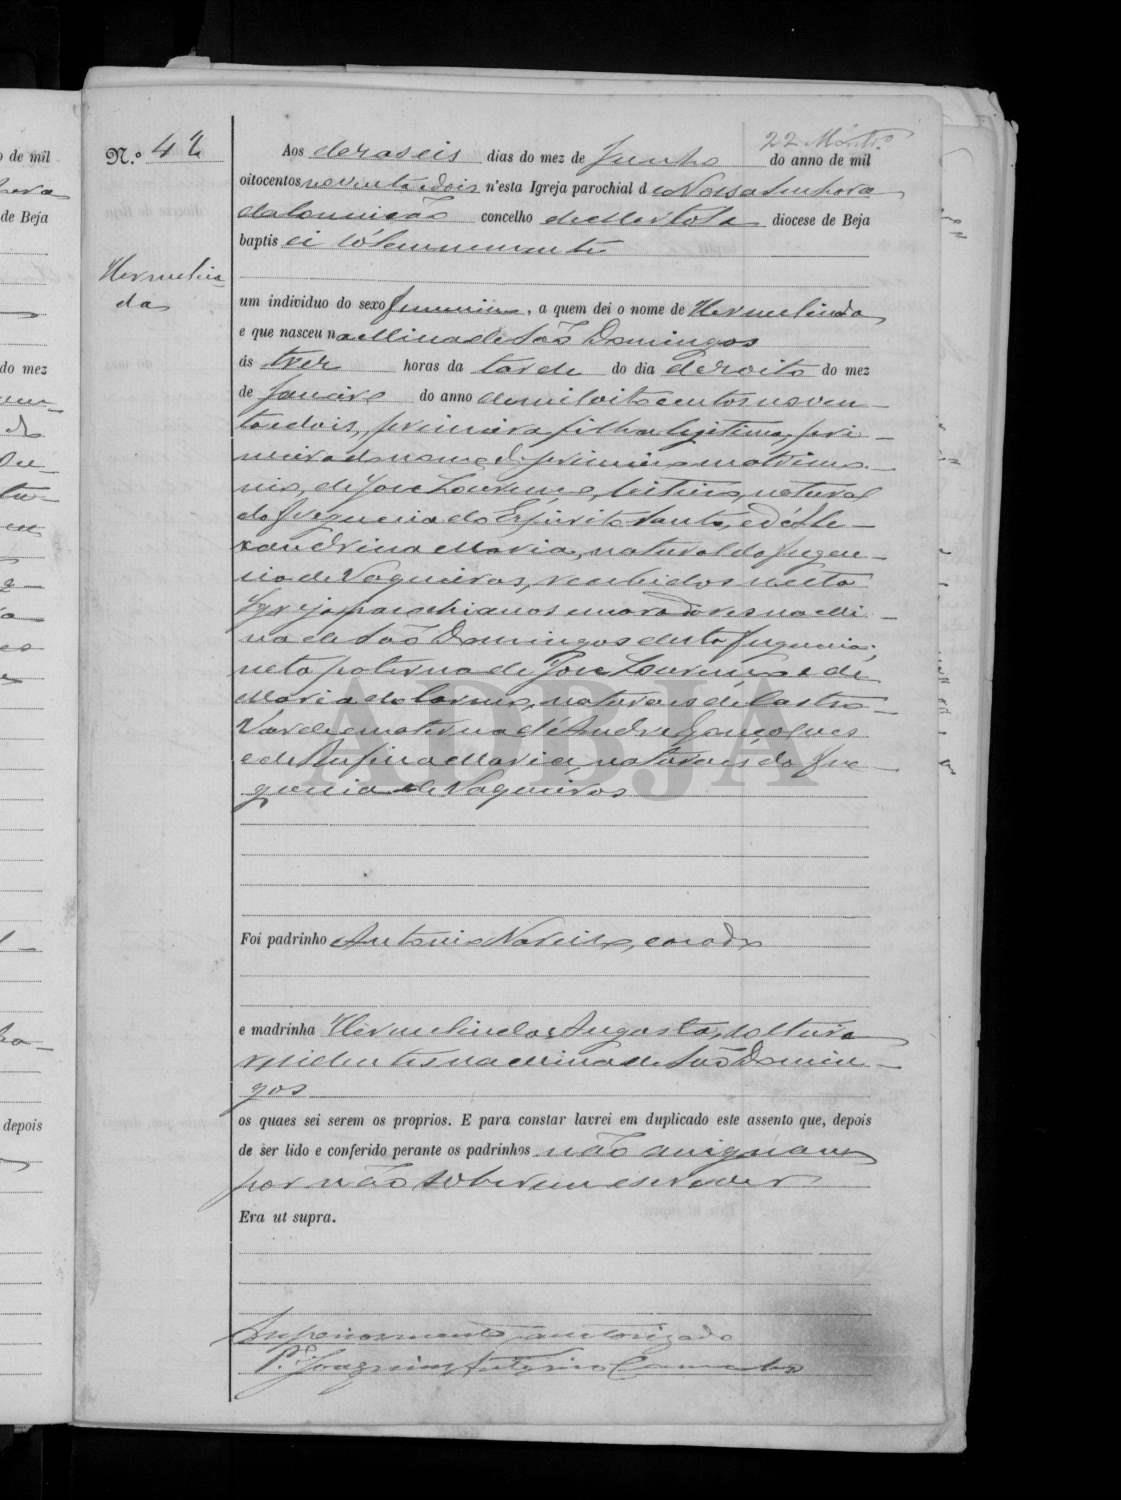 22 Mért.ª
N.º 42
Aos deraseis dias do mez de Junho do anno de mil
oitocentos noventa e dois n'esta Igreja parochial d e Nossa Senhora
da Conceição concelho de Mertola diocese de Beja
baptis ei solemnemente
Hermelin-
da
um individuo do sexo femenino, a quem dei o nome de Hermelinda
e que nasceu na Mina de São Domingos
ás trez horas da tarde do dia dezoito do mez
de Janeiro do anno de mil oito centos noven-
ta e dois, primeira filha legitima, pri-
meira do nome, de primeiro matrimo-
nio, de José Lourenço, natural
da freguezia do Espirito Santo, e de Ale-
xandrina Maria, natural da fregue-
zia de Vaqueiros, recebidos nesta
Igreja parochianos e moradores na Mi-
na de São Domingos desta freguezia;
neta paterna de José Lourenço e de
Maria do Carmo, naturaes de Castro-
Verde e materna de André Gonçalves
e de Rufina Maria, naturaes da fre-
guezia de Vaqueiros
ADBJA
Foi padrinho Antonio, casado
e madrinha Hermelinda Augusta, solteira
residentes na Mina de São Domin-
gos
os quaes sei serem os proprios. E para constar lavrei em duplicado este assento que, depois
de ser lido e conferido perante os padrinhos não assignaram
por não saberem escrever
Era ut supra.
Superiormente auctorizado
P.e Joaquim Antonio